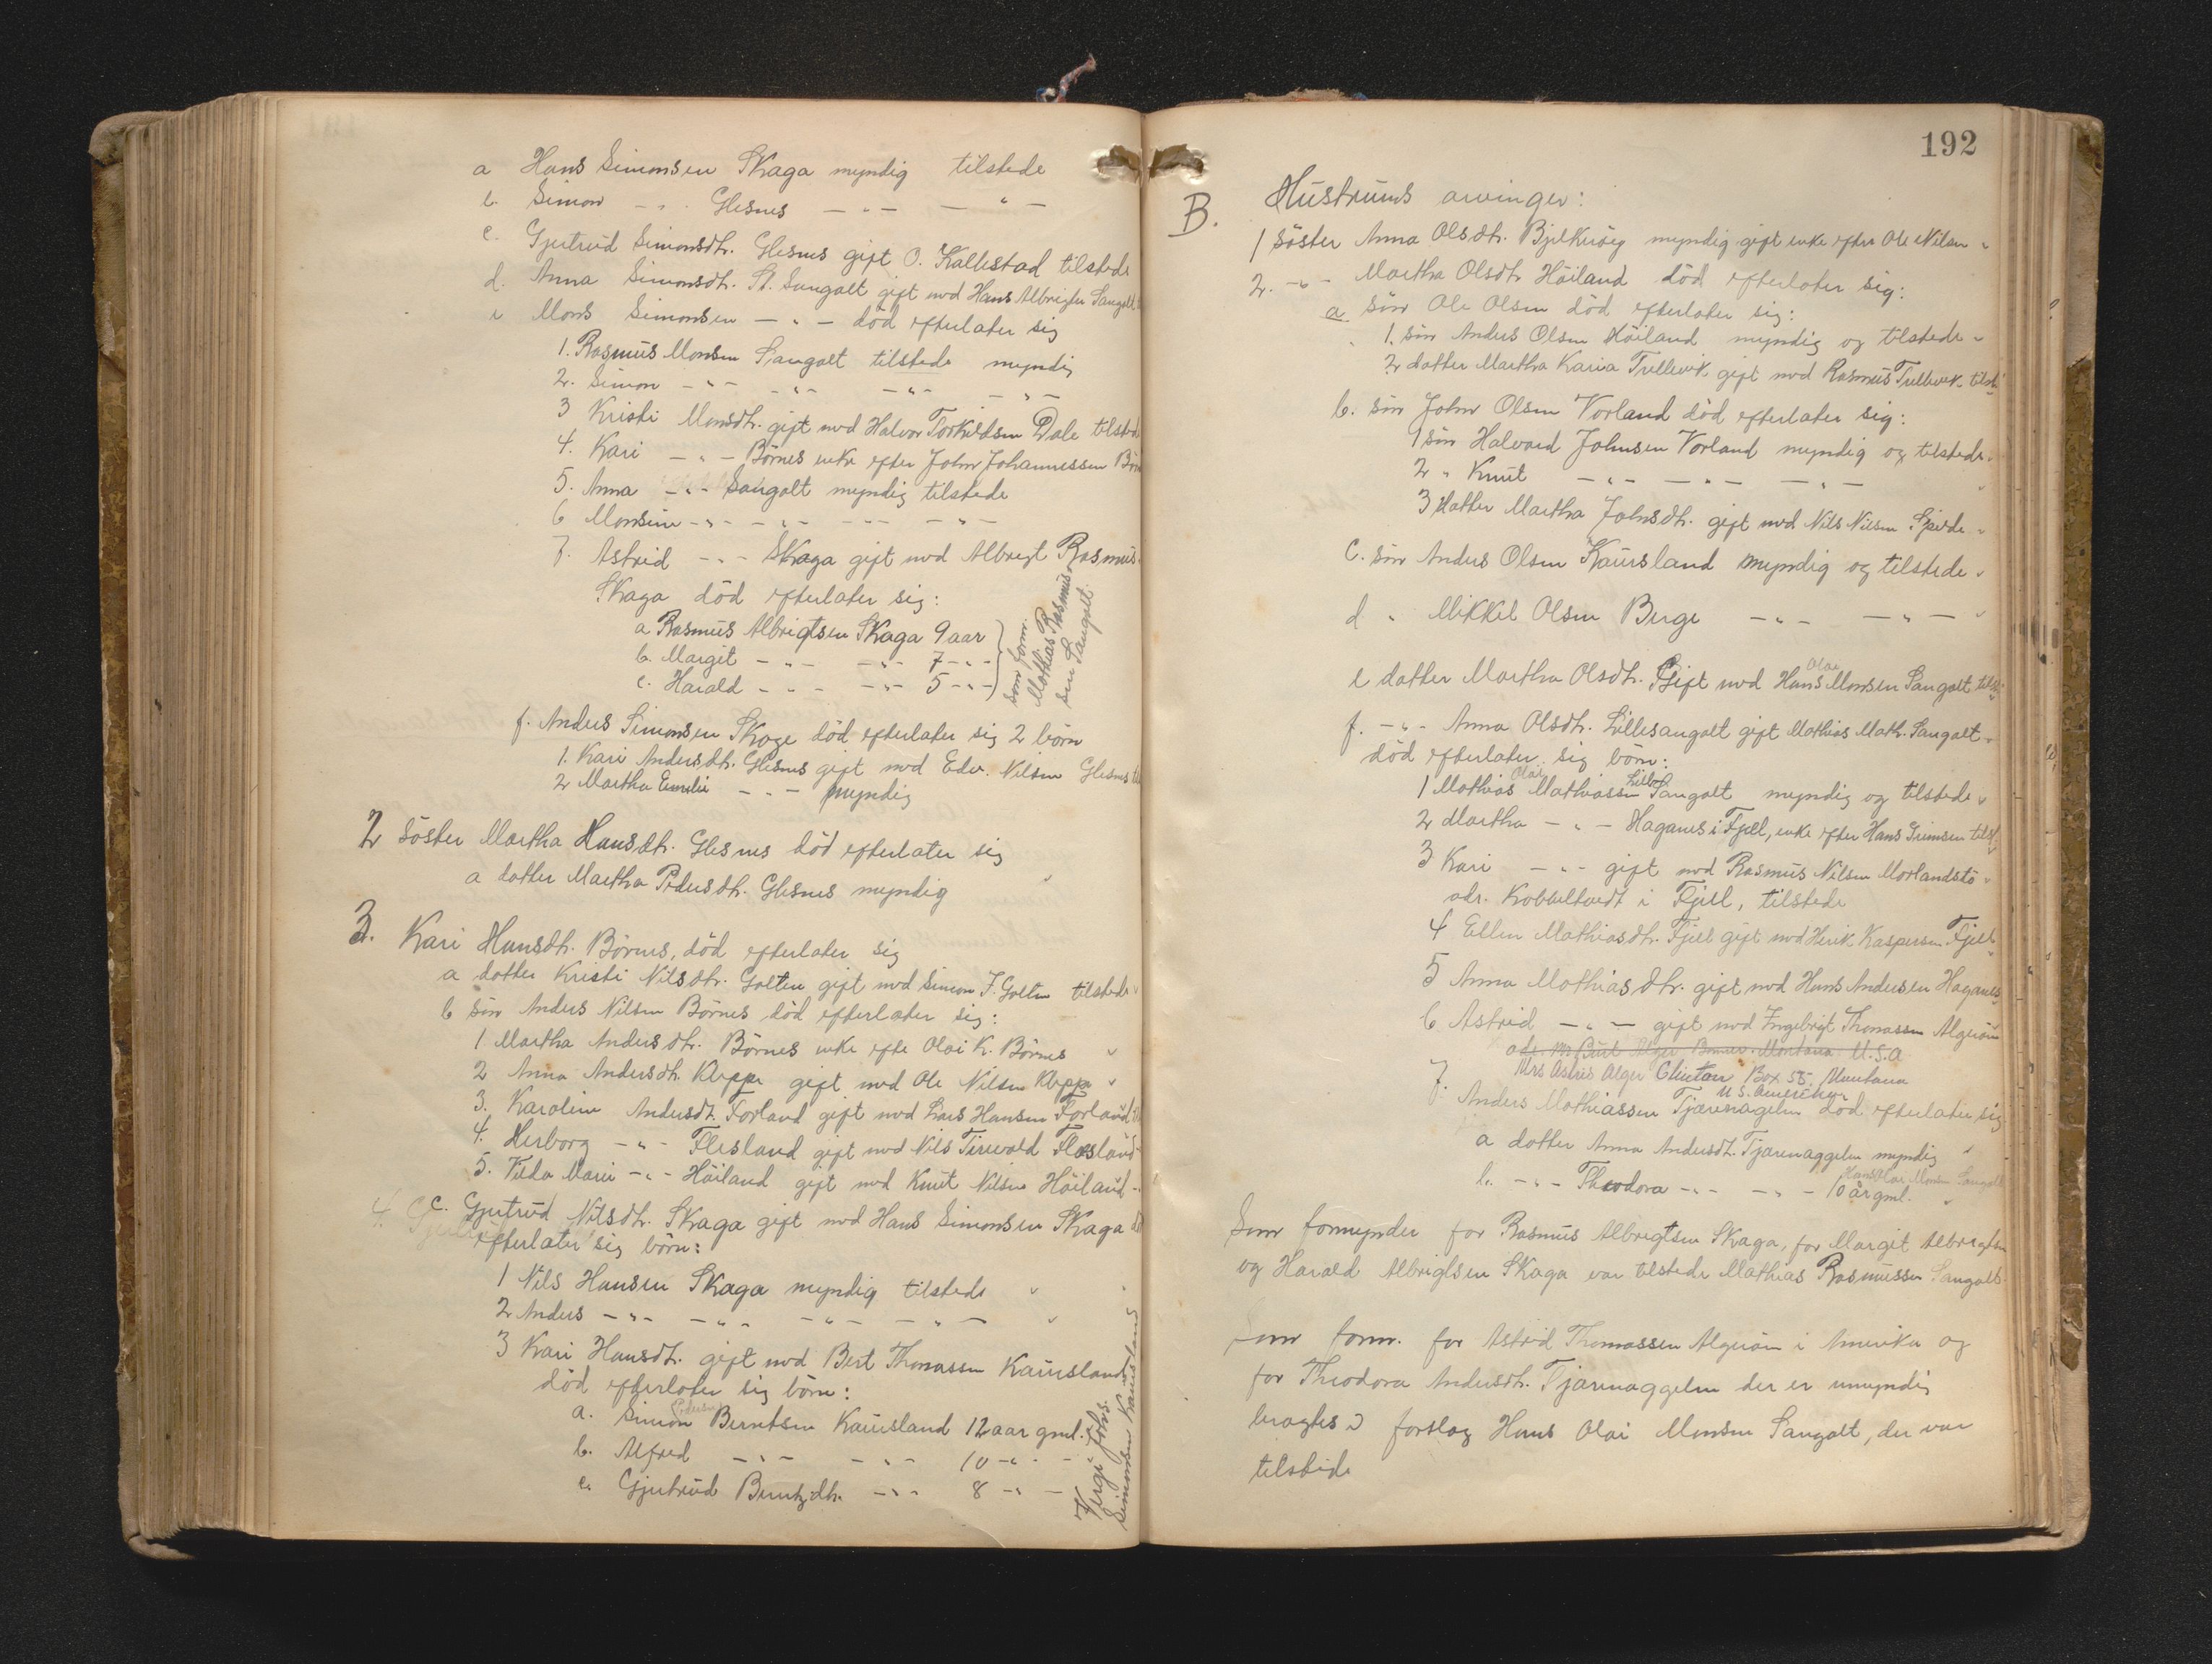 a Hans Simonsen Skaga myndig tilstede
b. Simon - " - Glesnes - " - - " -
c. Gjertrud Simonsdtr. Glesnes gift O. Kallestad tilstede
d. Anna Simonsdt. St. Sangolt gift med Hans Albrigts. Sangolt
e Mons Simonsen - " - död efterlater sig
1. Rasmus Monsen Sangolt tilstede myndig
2. Simon - " - - " - - " - - " -
3 Kristi Monsdtr. gift med Halvor Torkildsen Dale tilstede
4. Kari - " - Börnes enke efter John Johannessen Börn
5. Anna - " - Sangolt myndig tilstede
6 Monsine - " - - " - - " - - " -
7. Astrid - " - Skaga gift med Albregt Rasmus-
Skaga död efterlater sig:
a Rasmus Albrigtsen Skaga 9 aar
b. Margit - " - - " - 7 - " -
c. Harald - " - - " - 5 - " -
som form.
Mathias Rasmus
sen Sangolt.
f. Anders Simonsen Skage död efterlater sig 2 börn
1. Kari Andersdtr. Glesnes gift med Edv. Nilsen Glesnes til
2 Martha Emilie - " - myndig
2 Söster Martha Hansdtr. Glesnes död efterlater sig
a datter Martha Pedersdtr. Glesnes myndig
3. Kari Hansdtr. Börnes, död efterlater sig
a datter Kristi Nilsdtr. Golten gift med Simon J. Golten tilstede
b sön Anders Nilsen Börnes död efterlater sig:
1 Martha Andersdtr. Börnes enke efter Olai K. Börnes
2 Anna Andersdtr. Kleppe gift med Ole Nilsen Kleppe
3. Karoline Andersdt. Forland gift med Lars Hansen Forland
4. Herborg - " - Flesland gift med Nils Tirevold Flesland
5. Vida Marie - " - Höiland gift med Knut Nilsen Höiland
c. Gjertrud Nilsdtr. Skaga gift med Hans Simonsen Skaga
efterlater sig börn:
1 Nils Hansen Skaga myndig tilstede
2 Anders - " - - " - - " - - " -
3 Kari Hansdtr. gift med Bert Thomassen Kausland
död efterlater sig börn:
a. Simon Berntsen Kausland 12 aar gml.
b. Alfred - " - - " - 10 - " -
c. Gjertrud Berntzdtr. - " - 8 - " -
Verge Johs.
Simonsen Kausland
192
B. Hustruens arvinger:
1 Söster Anna Olsdtr. Bjelkeröey myndig gift enke efter Ole Nilsen
2. - " - Martha Olsdtr Höiland död efterlater sig:
a sön Ole Olsen död efterlater sig:
1. sön Anders Olsen Höiland myndig og tilstede
2 datter Martha Karia Trellevik gift med Rasmus Trellevik tilst.
b. sön John Olsen Vorland död efterlater sig:
1 sön Halvard Johnsen Vorland myndig og tilstede
2 " Knut - " - - " - - " -
3 datter Martha Johnsdtr. gift med Nils Nilsen
c. sön Anders Olsen Kausland myndig og tilstede
d " Mikkel Olsen Berge - " - - " -
Olai
e datter Martha Olsdtr. Gift med Hans Monsen Sangolt tilst.
f. - " - Anna Olsdtr. Lillesangolt gift Mathias Math. Sangolt
död efterlater sig börn:
Olai Lille
1 Mathias Mathiassen Sangolt myndig og tilstede
2 Martha - " - Haganes i Fjell, enke efter Hans Grimsen tilst.
3 Kari - " - gift med Rasmus Nilsen Morlandstö
adr. Kobbeltvedt i Fjell, tilstede
4 Ellen Mathiasdtr. Fjell gift med Henrik Kaspersen Fjell
5 Anna Mathiasdtr. gift med Hans Andersen Haganes
6 Astrid - " - gift med Ingebrigt Thomassen Algeröen
adr. Mr Burt Alger Bonner. Montana. U.S.A
Mrs Astrid Alger Clinton Box 55. Montana
U S. Amerika
7. Anders Mathiassen Tjærenagelen död efterlater sig
a datter Anna Andersdt. Tjærenaggelen myndig
Hans Olai Monsen Sangolt
b. - " - Theodora - " - - " - 10 år gml.
Som formynder for Rasmus Albregtsen Skaga, for Margit Albregtsen
og Harald Albrigtsen Skaga var tilstede Mathias Rasmussen Sangolt
Som form. for Astrid Thomassen Algeröen i Amerika og
for Theodora Andersdtr. Tjærenaggelen der er umyndig
bragtes i forslag Hans Olai Monsen Sangolt, der var
tilstede